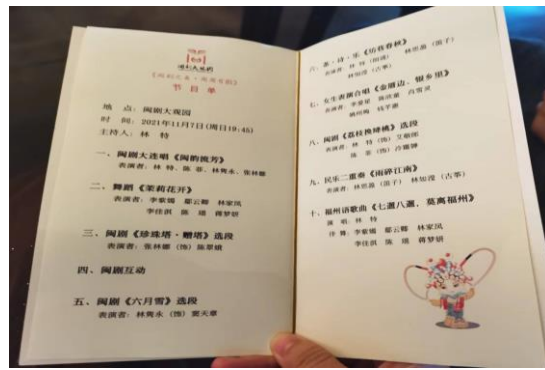 闽剧大观园
节目单
地 点：闽剧大观园
时 间：2021年11月7日(周日19:45)
主持人：林 特
一、闽剧大连唱《闽韵流芳》
表演者：林 特、陈 菲、林隽永、张林娜
二、舞蹈《茉莉花开》
表演者：李紫嫣 鄢云卿 林家凤
李佳淇 陈 瑶 蒋梦妍
三、闽剧《珍珠塔·赠塔》选段
表演者：张林娜（饰）陈翠娥
四、闽剧互动
五、闽剧《六月雪》选段
表演者：林隽永（饰）窦天章
六、茶·诗·乐《坊巷春秋》
表演者：林 特（朗诵） 林思盈（笛子）
（古筝）
七、女生表演合唱《金厝边、银乡里》
八、闽剧《荔枝换绛桃》选段
表演者：林 特（饰）艾敬郎
陈 菲（饰）冷霜婵
九、民乐二重奏《雨碎江南》
表演者：林思盈（笛子） （古筝）
十、福州语歌曲《七遛八遛，莫离福州》
演 唱：林 特
伴 舞：李紫嫣 鄢云卿 林家凤
李佳淇 陈 瑶 蒋梦妍